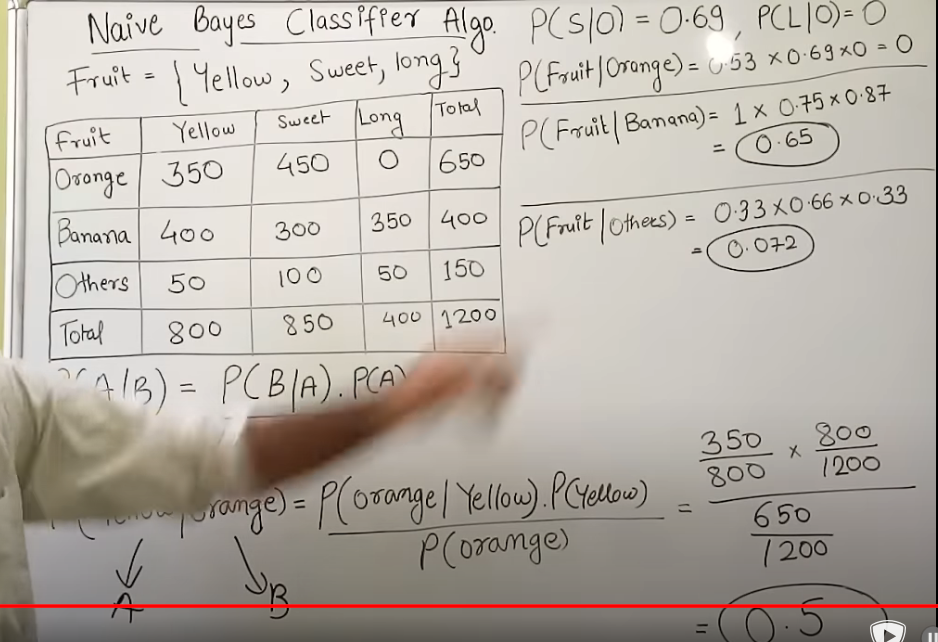 Naive Bayes Classifier Algo.
Fruit = { Yellow, Sweet, long }
Fruit Yellow Sweet Long Total
Orange 350 450 0 650
Banana 400 300 350 400
Others 50 100 50 150
Total 800 850 400 1200
A/B) = P(B/A). P(A)
range) = P(orange/Yellow). P(Yellow)
P(orange)
= 350/800 × 800/1200
650/1200
A B
= 0.5
P(S/O) = 0.69, P(L/O) = 0
P(Fruit/Orange) = 0.53 × 0.69 × 0 = 0
P(Fruit/Banana) = 1 × 0.75 × 0.87
= 0.65
P(Fruit/Others) = 0.33 × 0.66 × 0.33
= 0.072